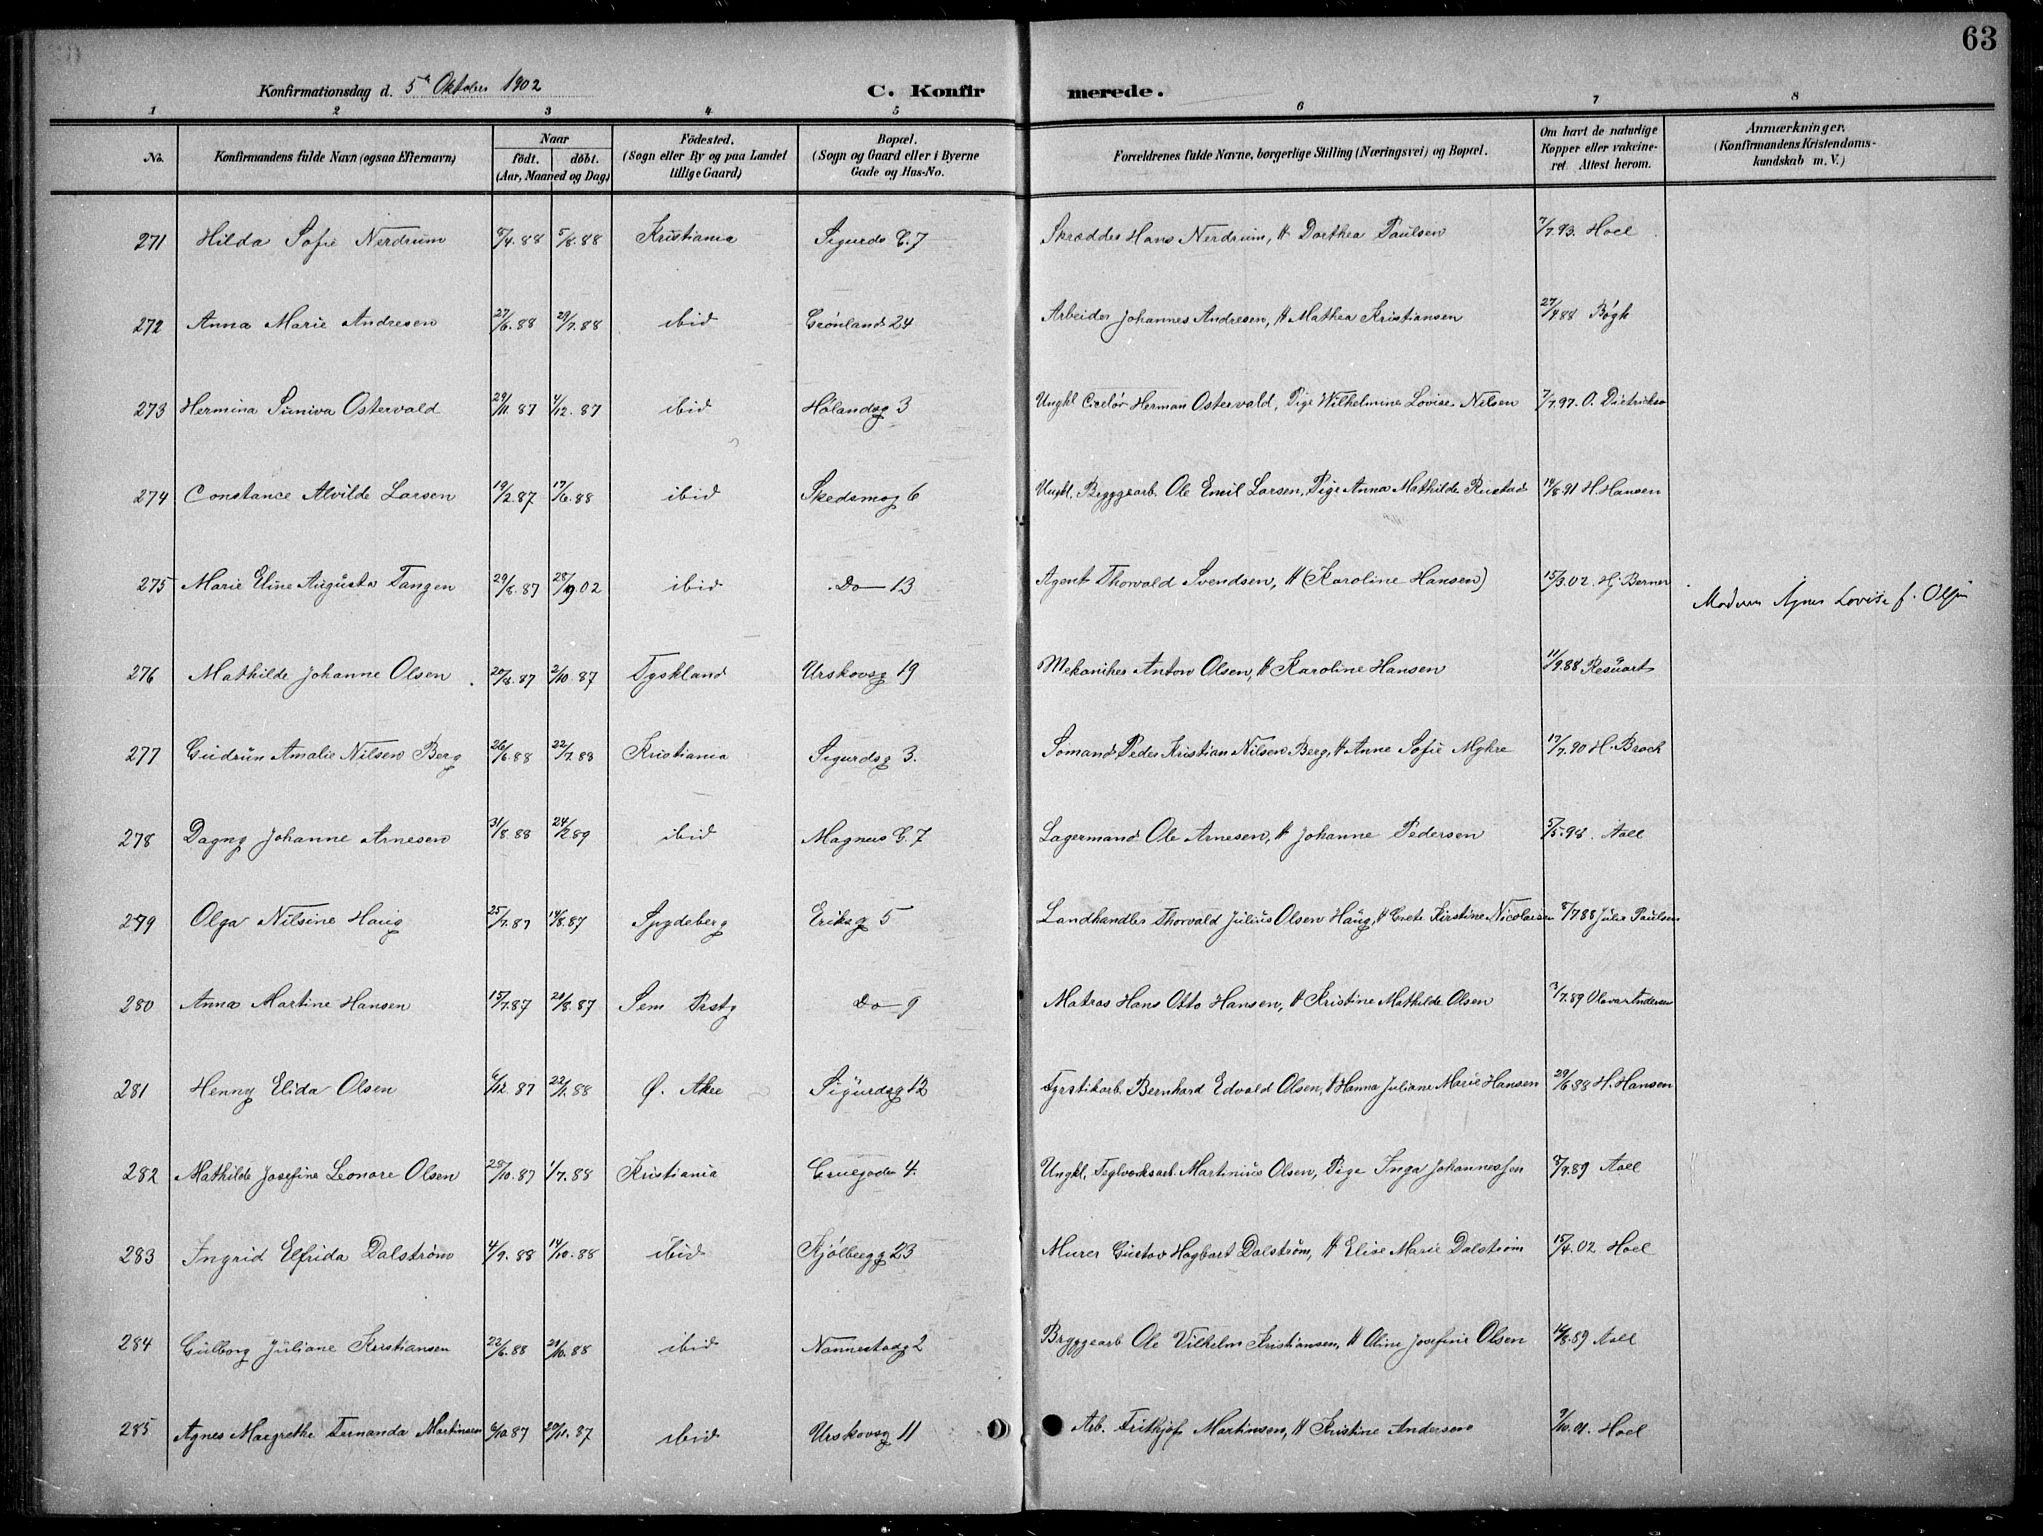 63
Konfirmationsdag d. 5te Oktober 1902
C. Konfirmerede.
1 2 3 4 5 6 7 8
No. | Konfirmandens fulde Navn (ogsaa Efternavn) | Naar født. døbt. (Aar, Maaned og Dag) | Födested. (Sogn eller By og paa Landet tillige Gaard) | Bopæl. (Sogn og Gaard eller i Byerne Gade og Hus-No. | Forældrenes fulde Navne, borgerlige Stilling (Næringsvei) og Bopæl. | Om havt de naturlige Kopper eller vakcineret. Attest herom. | Anmærkninger. (Konfirmandens Kristendomskundskab m. V.)
271 Hilda Sofie Nerdrum 5/4.88 5/8.88 Kristiania Sigurds G.7 Skrædder Hans Nerdrum, H Dorthea Paulsen 7/7.93. Hoel
272 Anna Marie Andresen 27/6.88 29/7.88 ibid Grønland 24 Arbeider Johannes Andresen, H Mathea Kristiansen 27/9 88 Bøgh
273 Hermina Suniva Ostervald 29/11.87 4/12.87 ibid Hølandsg 3 Ungkl Ciselør Herman Ostervald, Pige Wilhelmine Lovise Nilsen 7/7.97. O. Dietrichso
274 Constance Alvilde Larsen 19/2.87 17/6.88 ibid Skedsmog 6 Ungkl. Bryggearb. Ole Emil Larsen, Pige Anna Mathilde Rustad 19/8 91 H. Hansen
275 Marie Eline Augusta Tangen 29/8.87 28/9 02 ibid Do 13 Agent Thorvald Svendsen, H (Karoline Hansen) 15/3.02. Hj. Berner Moderen Agnes Lovise f. Olsen
276 Mathilde Johanne Olsen 20/8.87 2/10.87 Tyskland Urskovsg 19 Mekaniker Anton Olsen, H Karoline Hansen 11/9.88
277 Gudrun Amalie Nilsen Berg 26/6.88 22/7.88 Kristiania Sigurdsg 3. Sømand Peder Kristian Nilsen Berg, H Anne Sofie Myhre 17/7.90 H. Broch
278 Dagny Johanne Arnesen 31/8.88 24/2 89 ibid Magnus G.7 Lagermand Ole Arnesen, H Johanne Pedersen 5/5.98. Aall
279 Olga Nilsine Haug 25/7.87 14/8.87 Spydeberg Eriksg 5 Landhandler Thorvald Julius Olsen Haug, H Grete Kirstine Nicolaisen 5/7 88 Jules Paulsen
280 Anna Martine Hansen 15/7.87 28/8.87 Sem Prstg Do 9 Matros Hans Otto Hansen, H Kristine Mathilde Olsen 3/7.89 Olavar Andersen
281 Henny Elida Olsen 6/12.87 22/1.88 Ø. Aker Sigurdsg 12 Fyrstikarb. Bernhard Edvald Olsen, H Hanna Juliane Marie Hansen 29/6 88 H. Hansen
282 Mathilde Josefine Leonore Olsen 28/10.87 1/7.88 Kristiania Gruegaden 4. Ungkl. Teglverksarb. Martinius Olsen, Pige Inga Johannessen 5/9.89 Aall
283 Ingrid Elfrida Dalstrøm 4/9.88 14/10.88 ibid Kjølbergg 23 Murer Gustav Hagbart Dalstrøm, H Elise Marie Dalstrøm 15/4.02 Hoel
284 Gulborg Juliane Kristiansen 22/6.88 21/10.88 ibid Nannestadg 2 Bryggearb Ole Vilhelm Kristiansen, H Oline Josefine Olsen 16/8.89 Aall
285 Agnes Margrethe Fernanda Martinsen 6/10 87 20/11.87 ibid Urskovsg 11 Arb. Frithjof Martinsen, H Kristine Andersen 9/10.01. Hoel